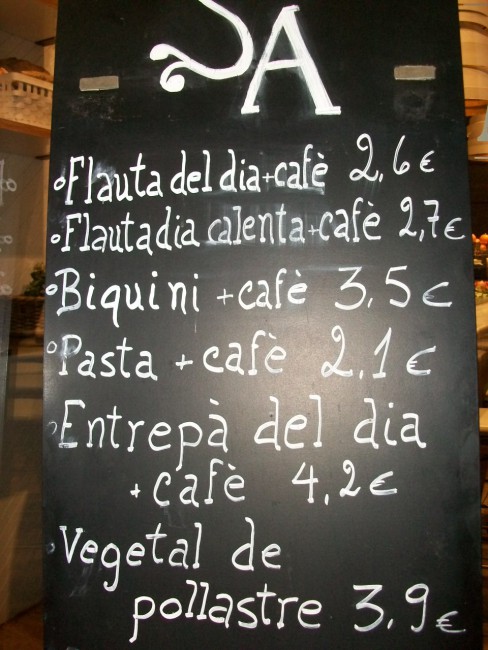 SA
Flauta del dia+cafè 2,6€
Flauta dia calenta+cafè 2,7€
Biquini +cafè 3,5€
Pasta + cafè 2,1€
Entrepà del dia
+ cafè 4,2€
Vegetal de
pollastre 3,9€